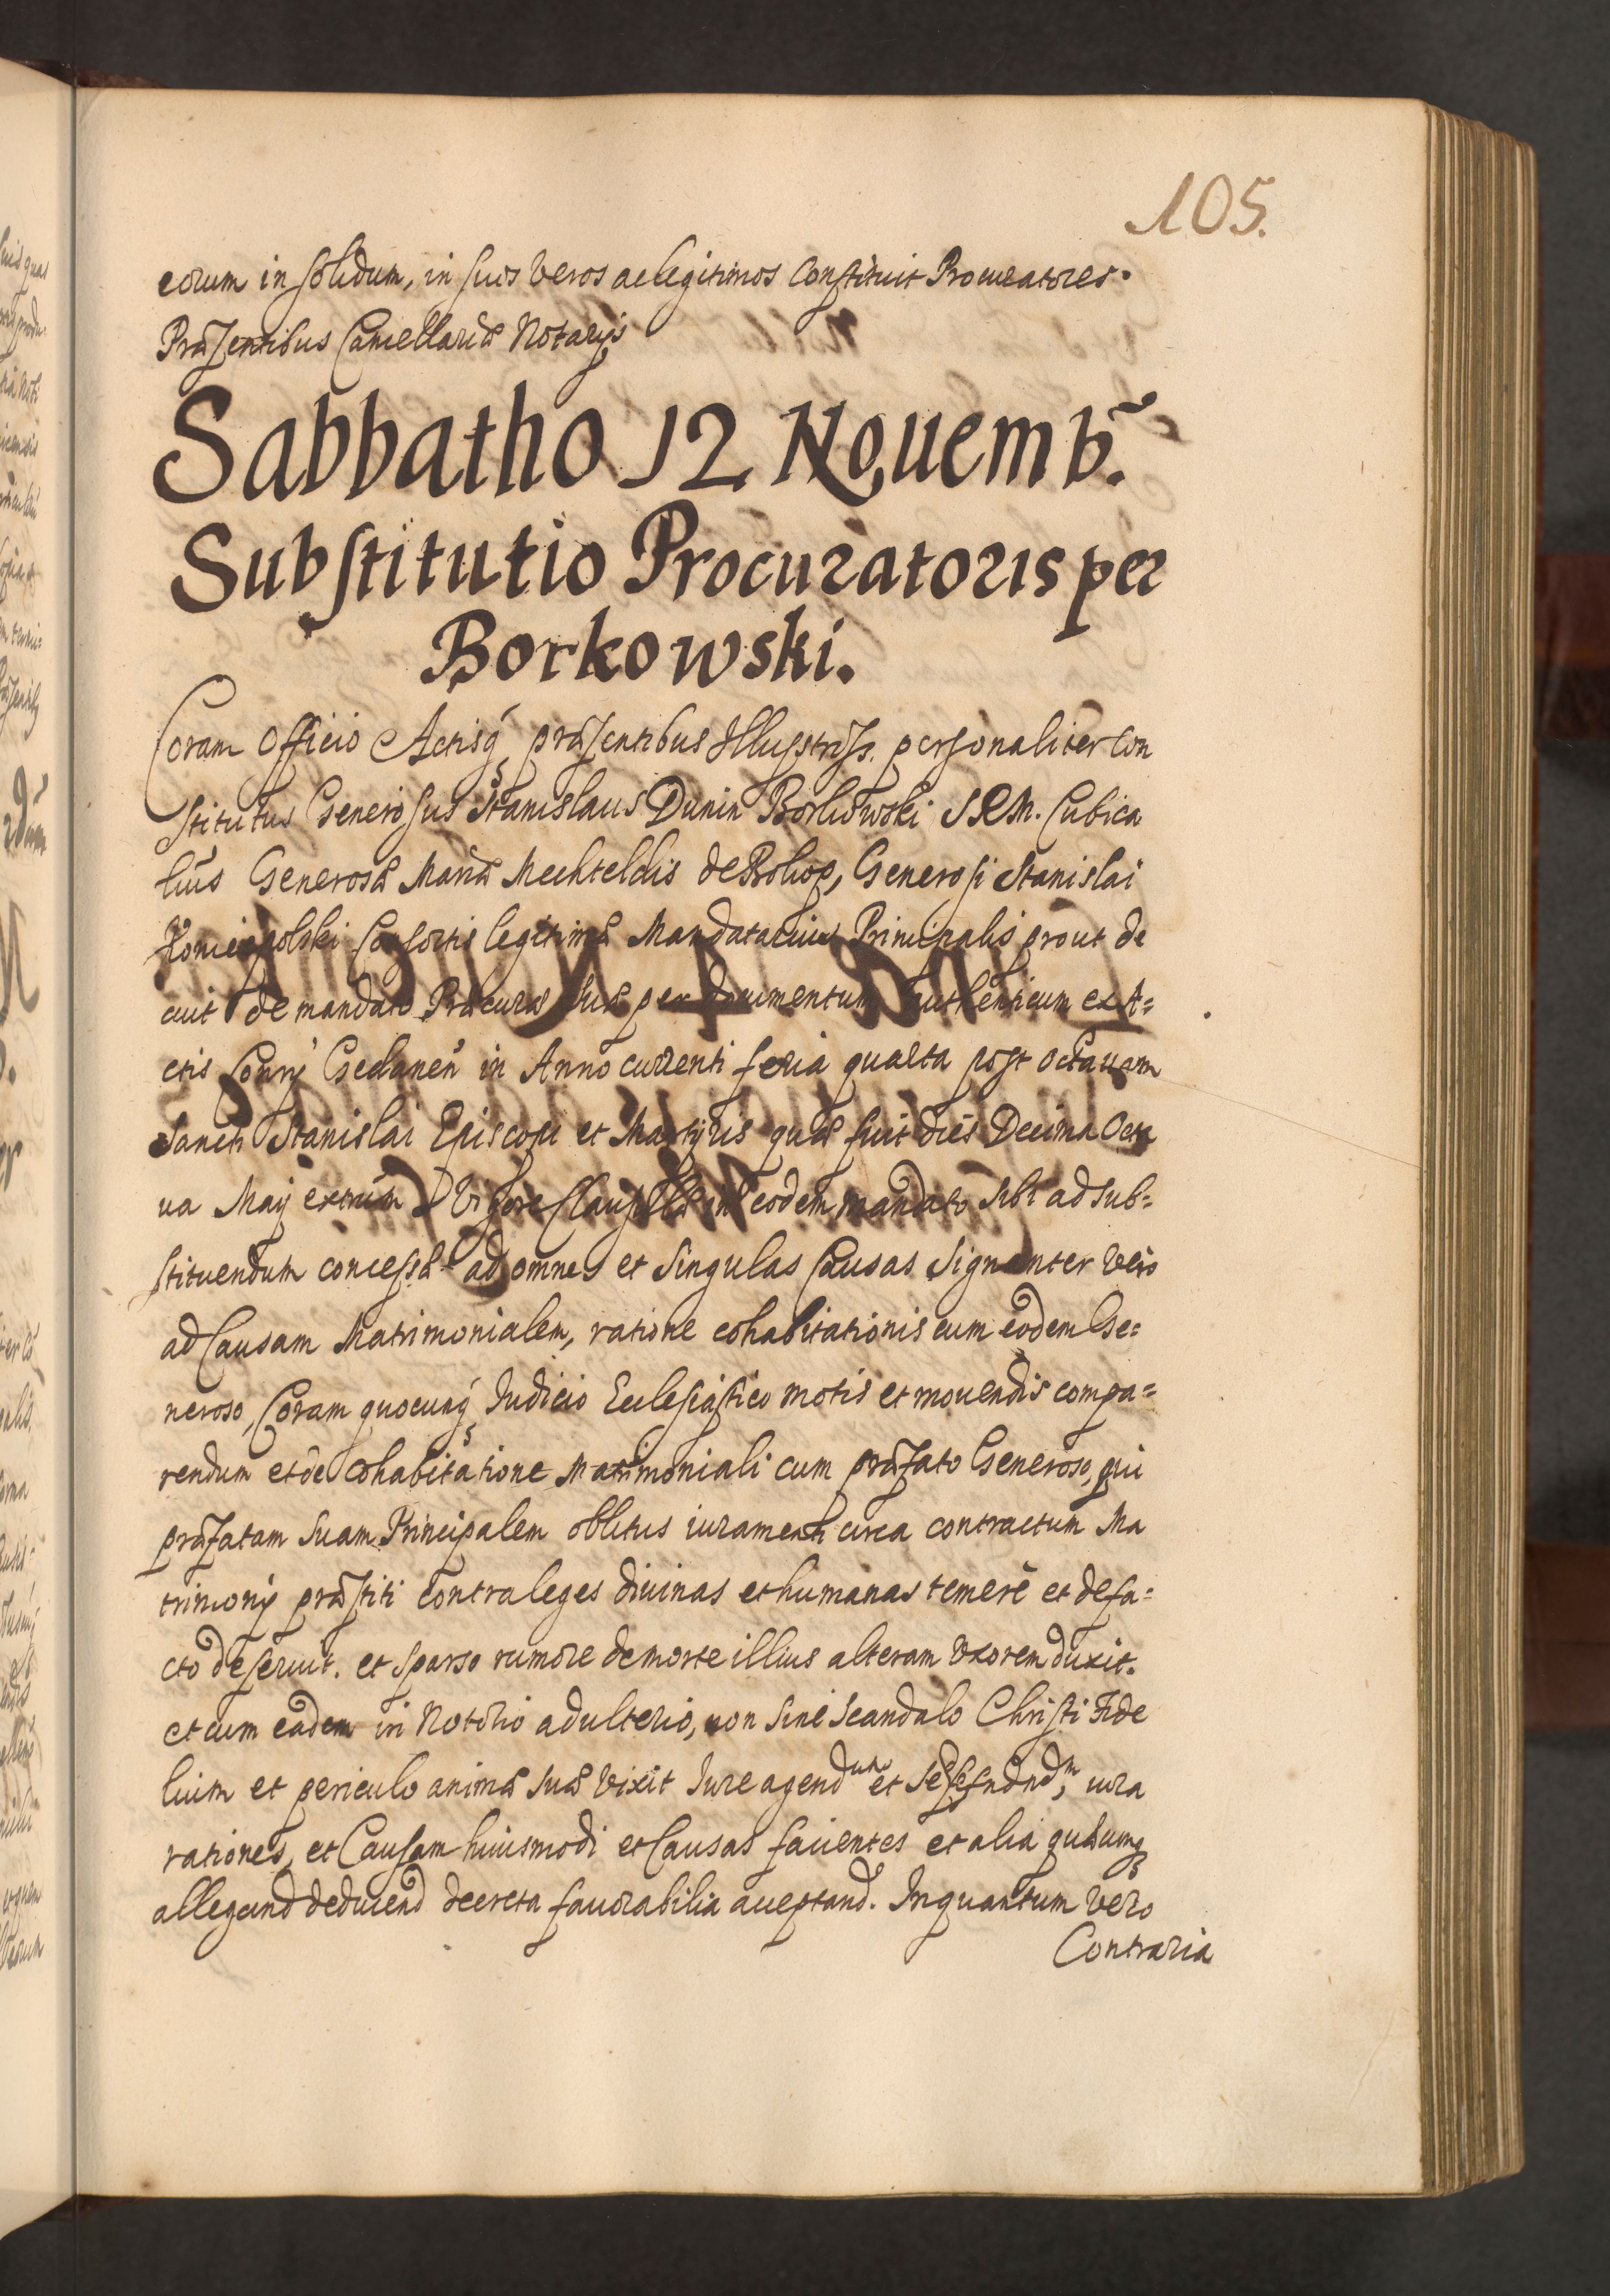 105.
eorum in solidum, in suos veros ac legitimos Constituit Procuratores.
Præsentibus Cancellariæ Notarijs
Sabbatho 12 Nouemb.
Substitutio Procuratoris per
Borkowski.
Coram Officio Actisq, præsentibus Illustriss. personaliter Con
stitutus Generosus Stanislaus Dunin Borkowski SRM. Cubica
lius Generosæ Mariæ Mechteldis de Generosi Stanislai
Koniecpolski Consortis legitimæ Mandatarius Principalis prout do
cuit de mandato Procuræ suæ per documentum authenticum ex A=
ctis Gedanen in Anno currenti feria quarta post octauam
Sancti Stanislai Episcopi et Martyris quæ fuit dies Decima Octa
ua Maij extractum Vigore Clausulæ in eodem mandato sibi ad sub=
stituendum concessæ ad omnes et singulas Causas signanter vero
ad Causam Matrimonialem, ratione cohabitationis cum eodem Ge=
neroso, Coram quocunq Iudicio Ecclesiastico motis et mouendis compa=
rendum et de cohabitatione Matrimoniali cum præfato Generoso, qui
præfatam suam Principalem oblitus iuramenti circa contractum Ma
trimonij præstiti contra leges diuinas et humanas temerè et de fa=
cto deseruit. et sparso rumore de morte illius alteram Uxorem duxit.
et cum eadem in Notorio adulterio, non sine scandalo Christi Fide
lium et periculo animæ suæ vixit Iure agendum et iura
rationes, et Causam huiusmodi et Causas fauentes et alia quæcunq
allegand deducend decreta fauorabilia acceptand. Inquantum vero
Contraria